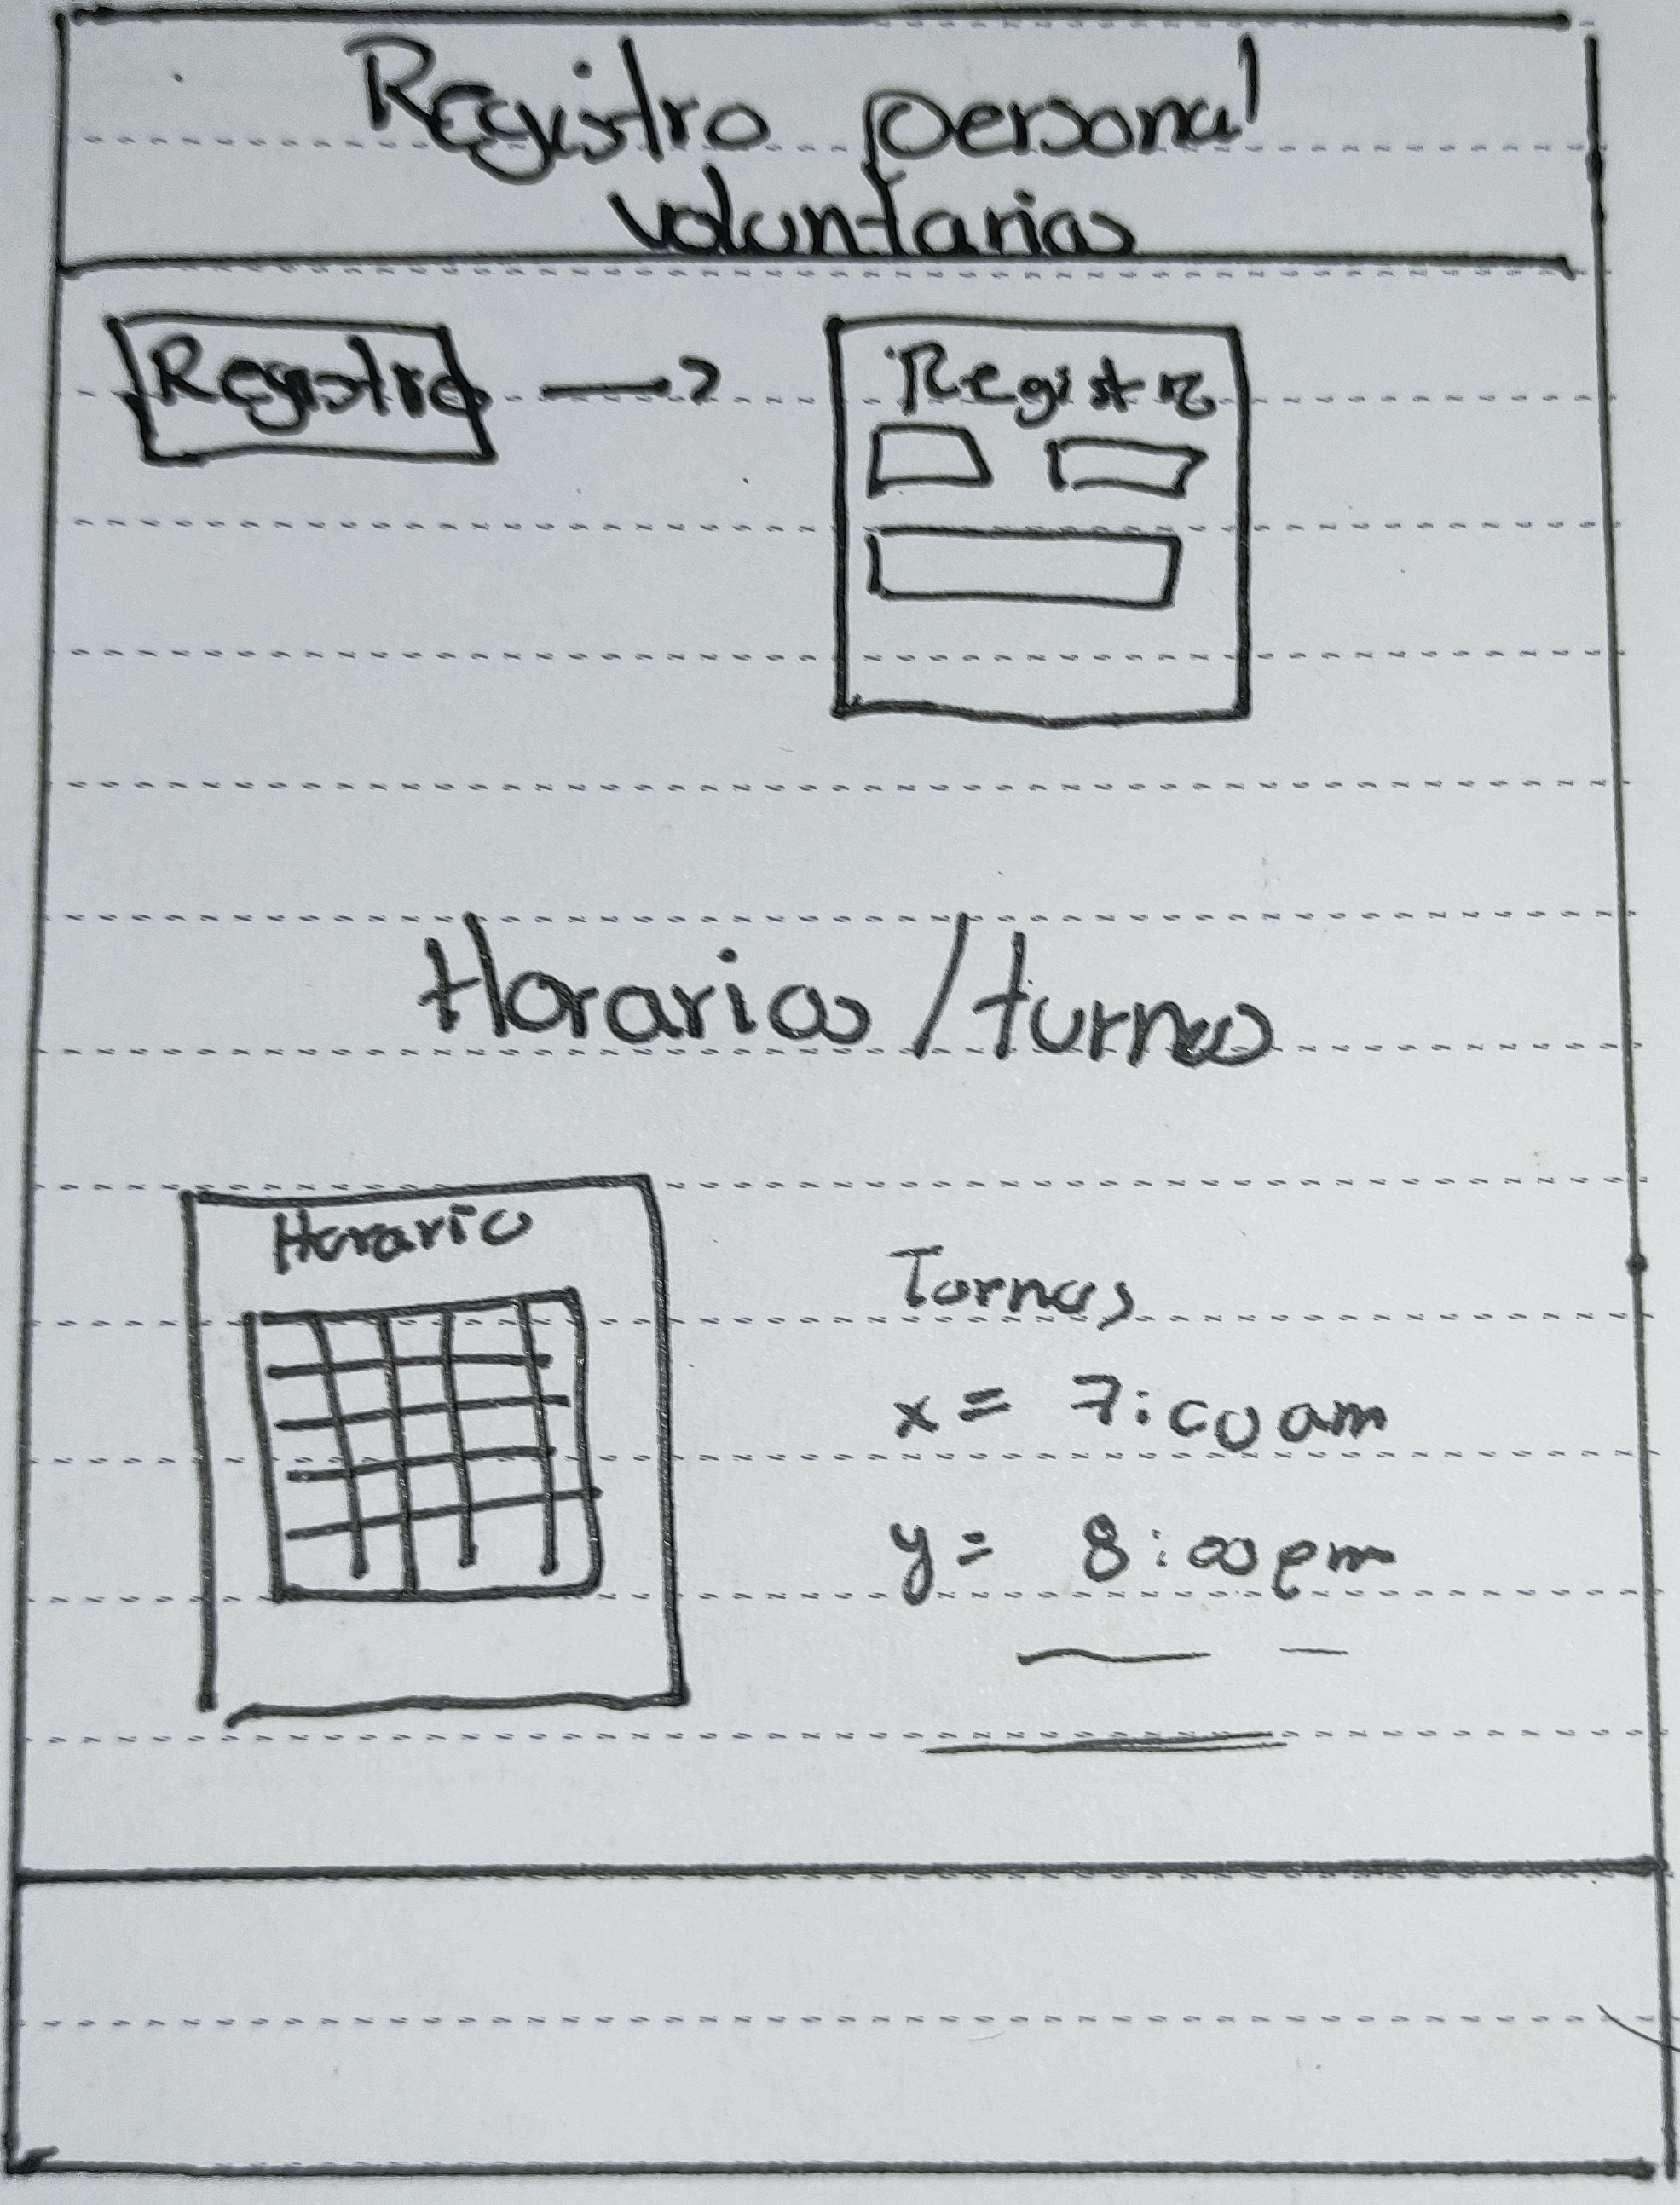 Registro personal
voluntarios
Registro
Registro
Horarios / turnos
Horario
Turnos
x = 7:00 am
y = 8:00 pm